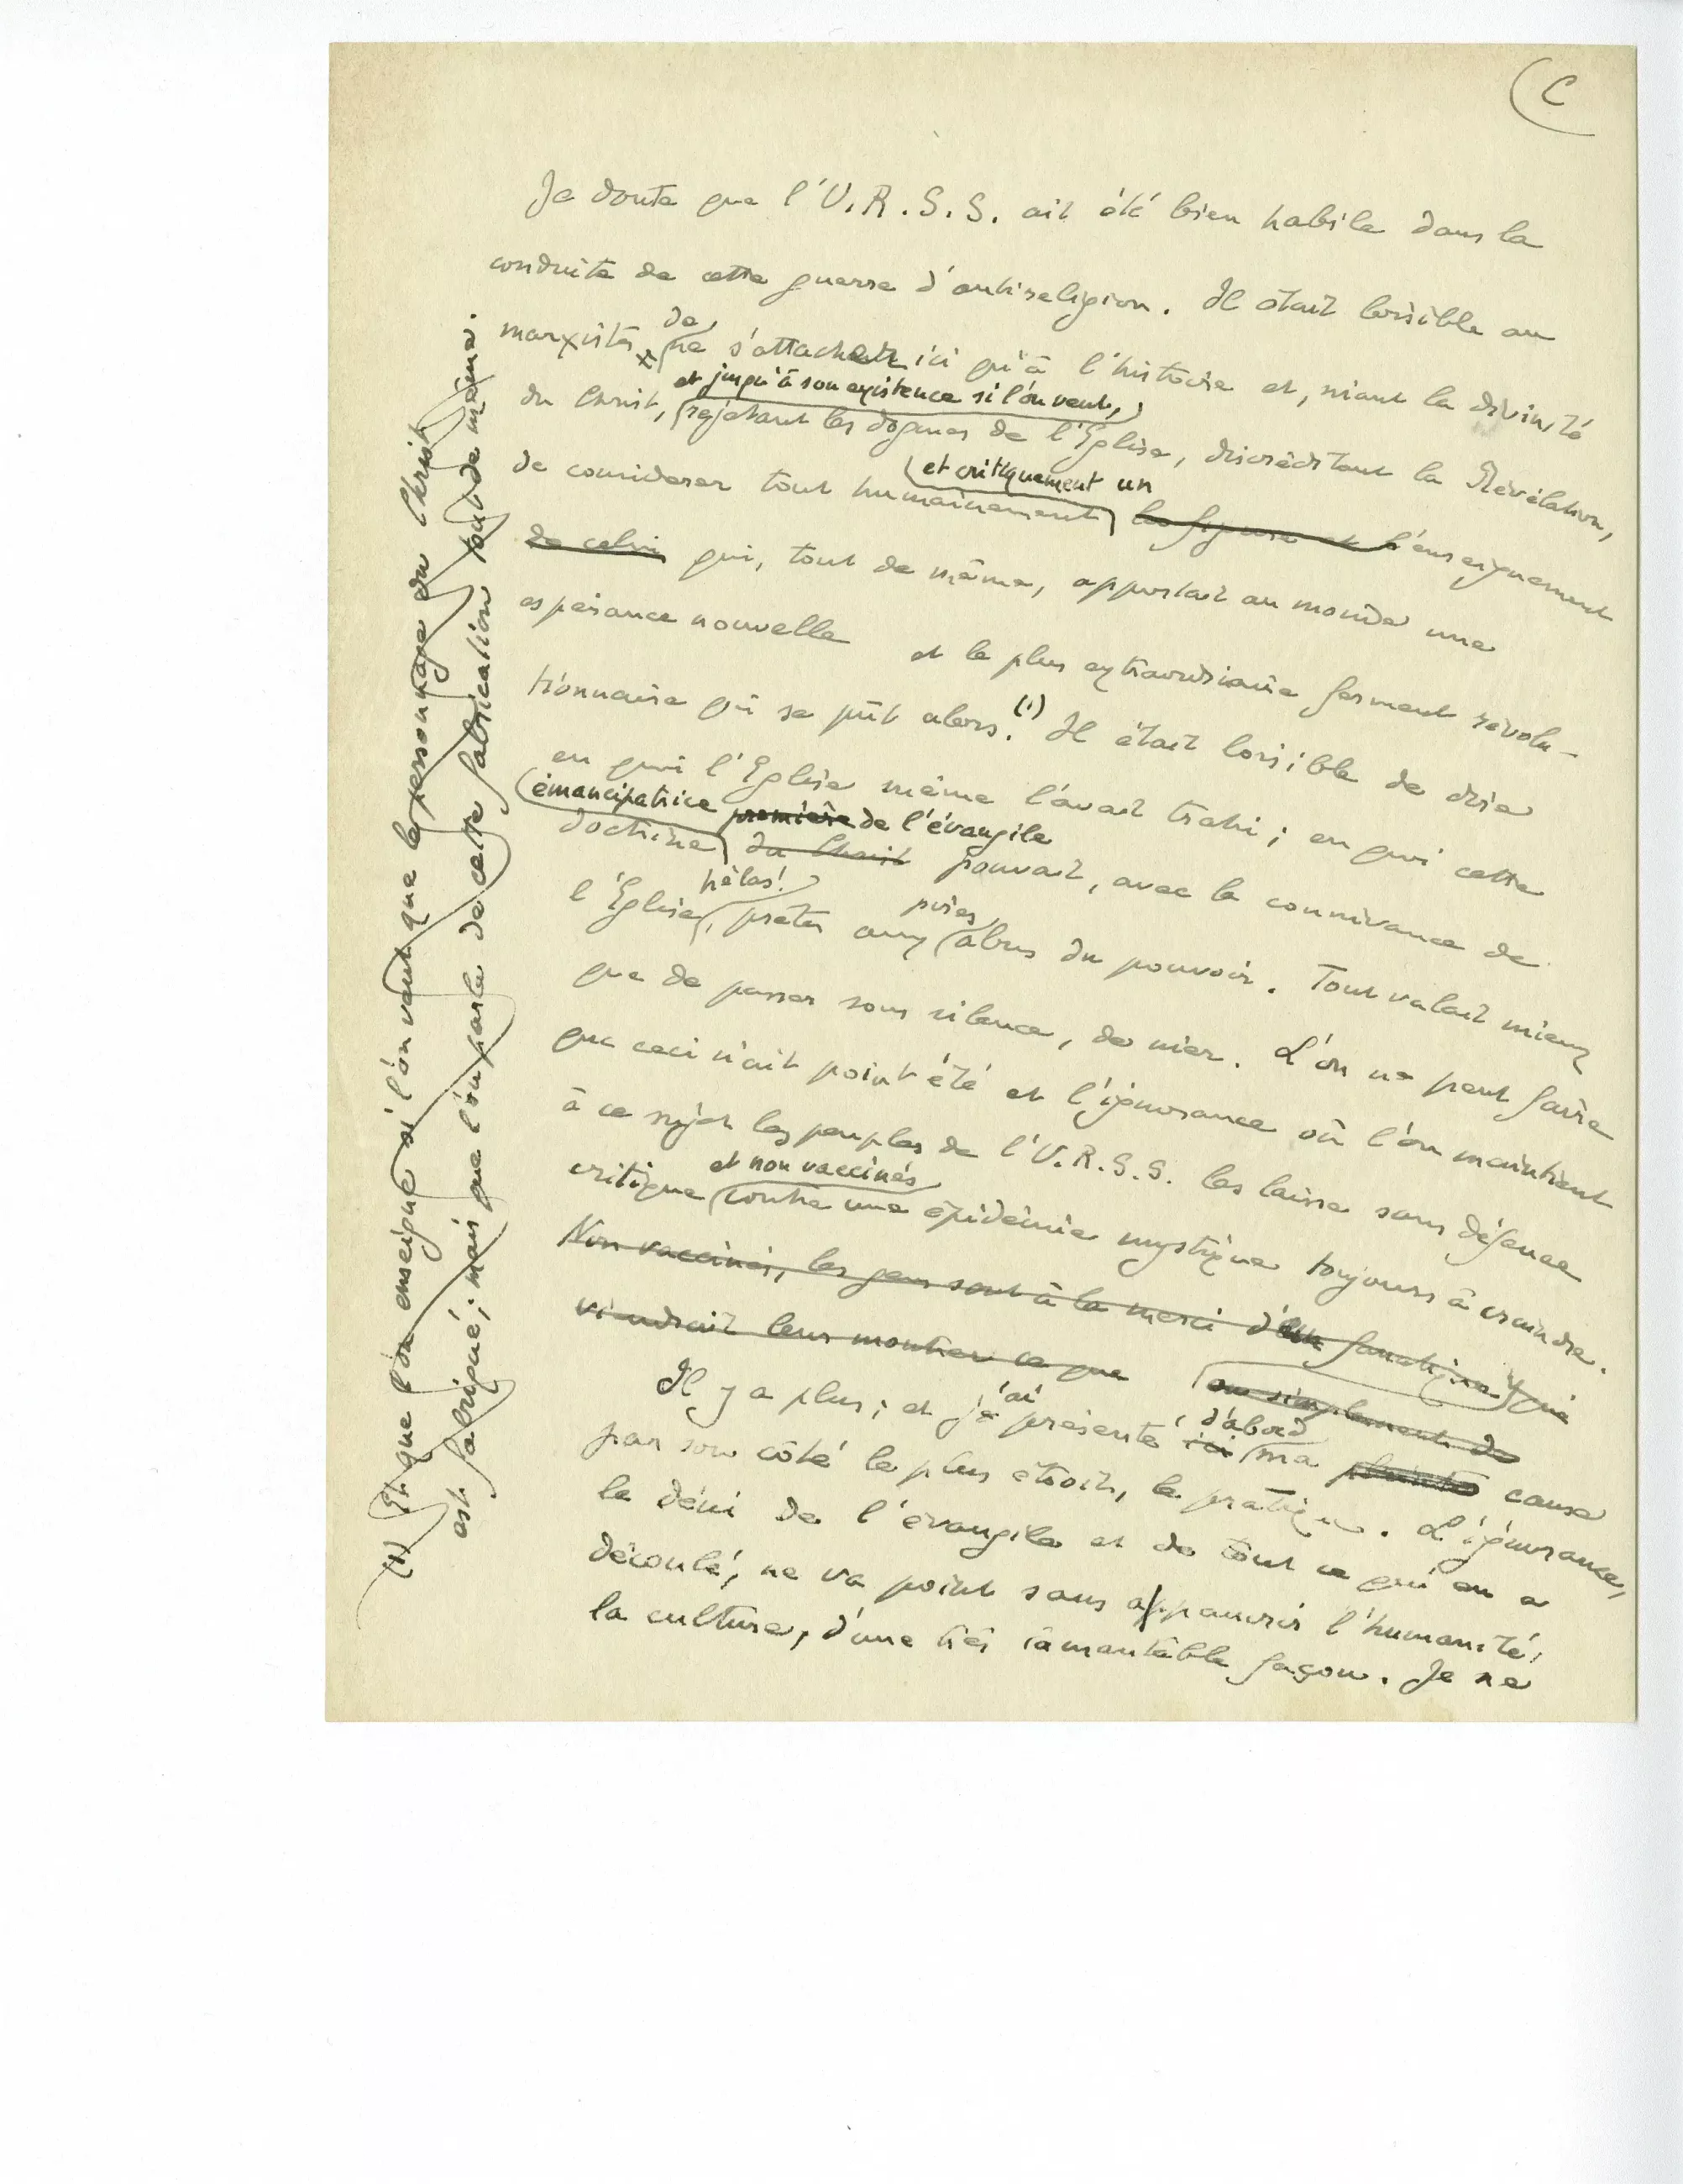 C
Je doute que l'U.R.S.S. ait été bien habile dans la
conduite de cette guerre d'antireligion. Il était loisible au
de
marxistes ne s'attacher ici qu'à l'histoire et, niant la divinité
et jusqu'à son existence si l'on veut,
du Christ, rejetant les dogmes de l'Eglise, discréditant la Révélation,
et critiquement un
de considerer tout humainement la figure et l'enseignement
de celui qui, tout de même, apportait au monde une
espérance nouvelle et le plus extraordinaire ferment révolu-
tionnaire qui se pût alors. (1) Il était loisible de dire
en quoi l'Eglise même l'avait trahi; en quoi cette
émancipatrice première de l'évangile
doctrine du Christ pouvait, avec la connivence de
hélas! pires
l'Eglise, prêter aux abus du pouvoir. Tout valait mieux
que de passer sous silence, de nier. L'on ne peut faire
que ceci n'ait point été et l'ignorance où l'on maintient
à ce sujet les peuples de l'U.R.S.S. les laisse sans défense
et non vaccinés
critique contre une épidémie mystique toujours à craindre.
Non vaccinés, les gens sont à la merci d'un fanatique qui
viendrait leur montrer ce que ou simplement de
ai d'abord
Il y a plus; et je présenté ici ma plainte cause
par son côté le plus étroit, le pratique. L'ignorance,
le déni de l'évangile et de tout ce qui en a
découlé, ne va point sans appauvrir l'humanité,
la culture, d'une très lamentable façon. Je ne
(1) Et que l'on enseigne si l'on veut que le personnage du Christ
est fabriqué; mais que l'on parle de cette fabrication tout de même.